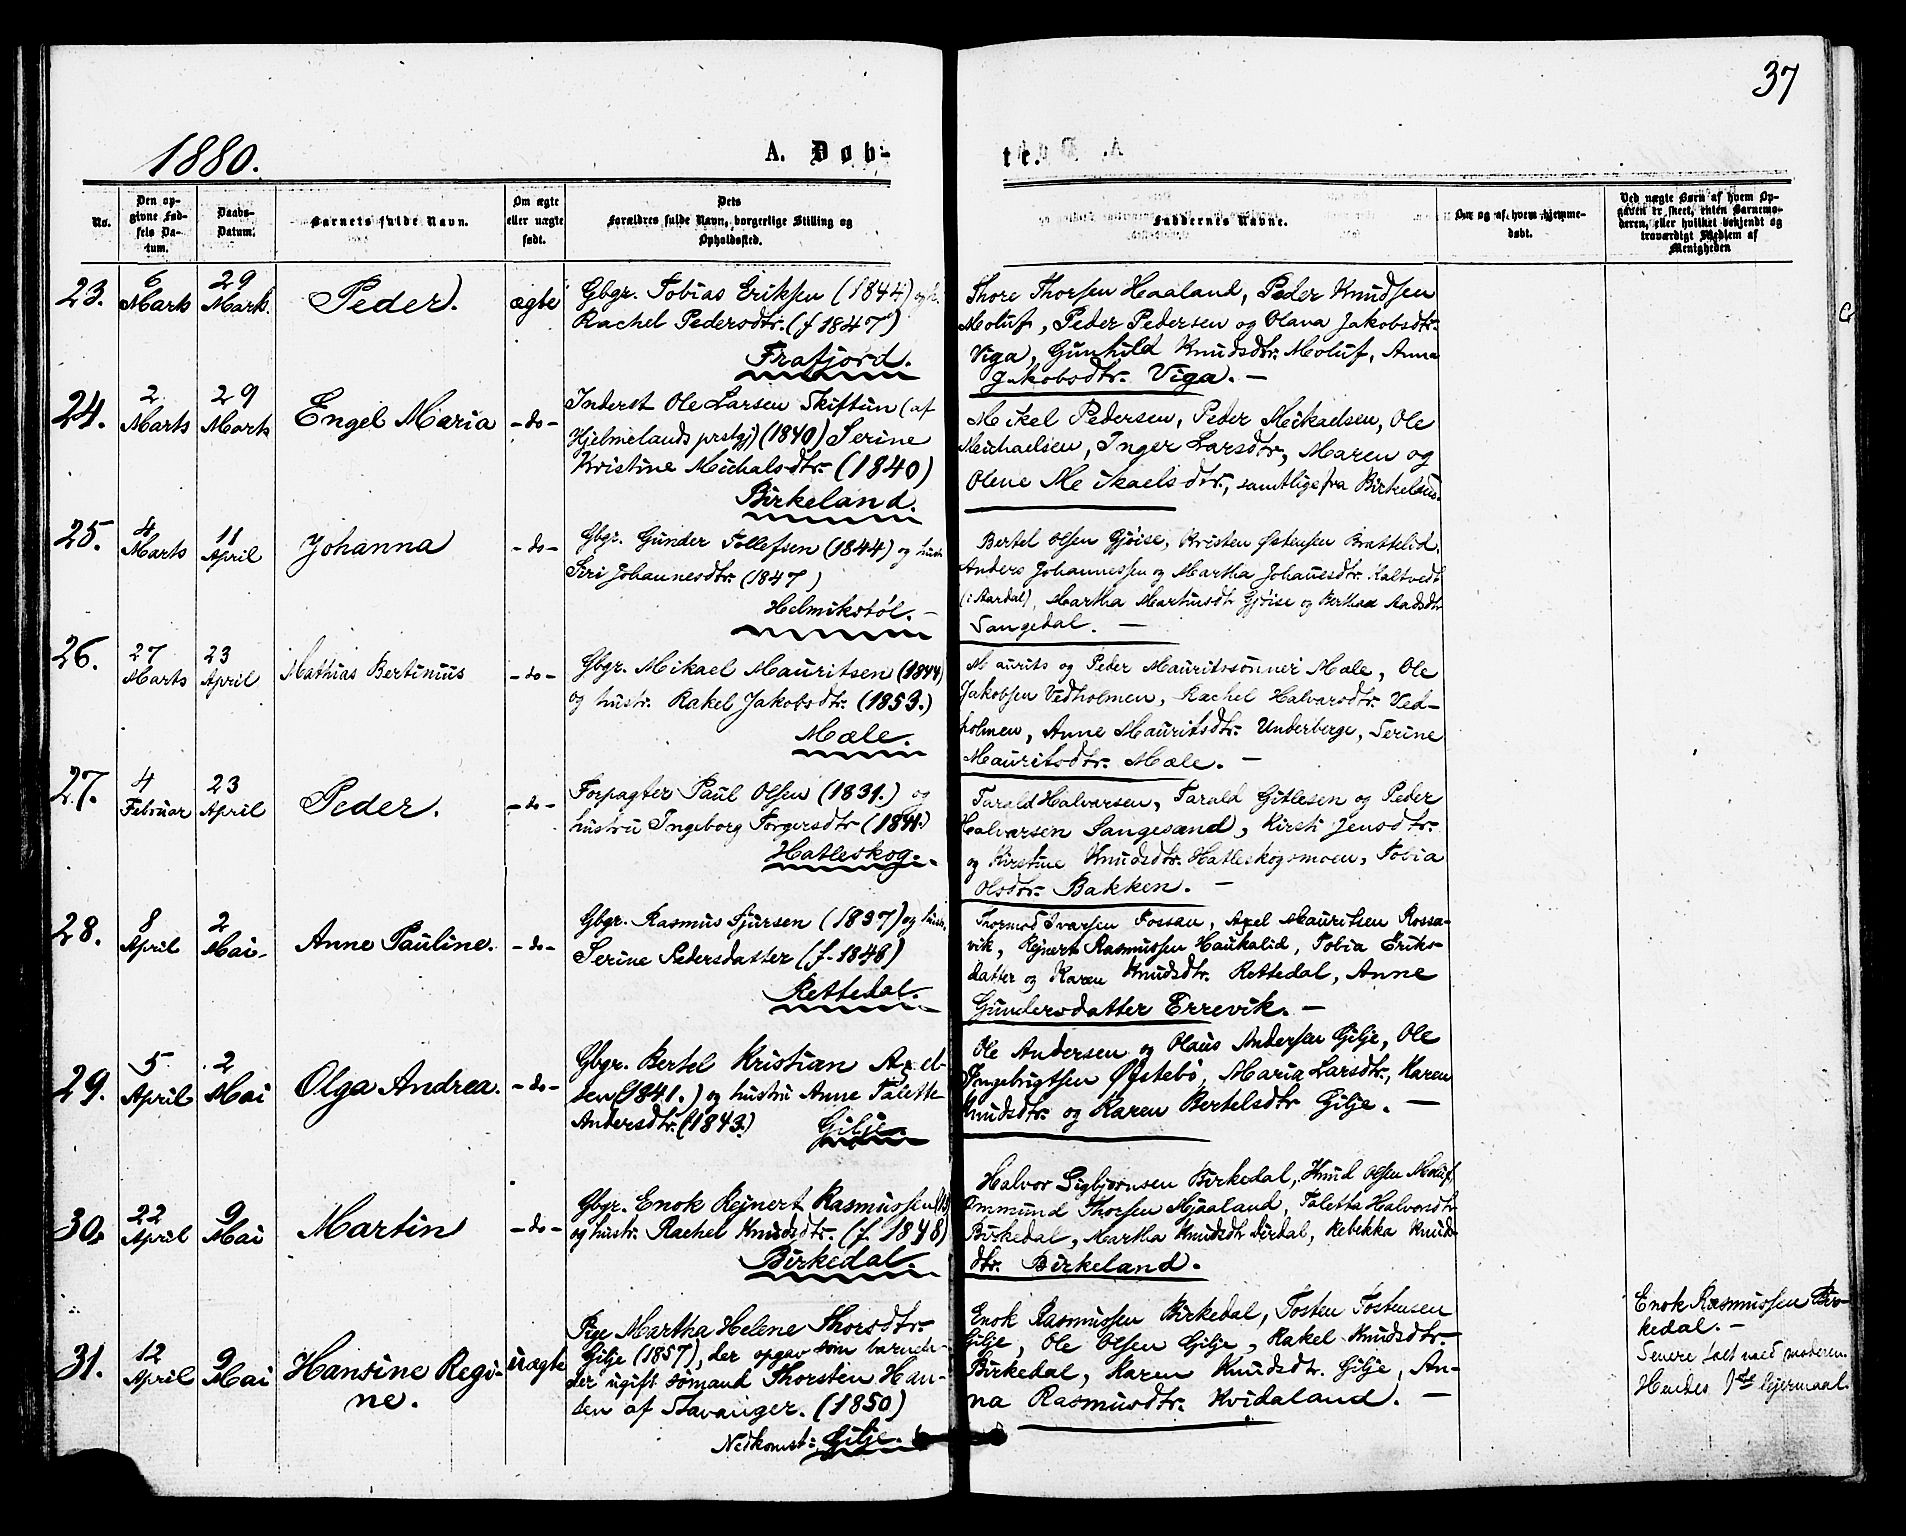 37
1880.
A. Døb-
te.
No.
Den op-
givne Fød-
sels Da-
tum.
Daabs-
Datum.
Barnets fulde Navn.
Om ægte
eller uægte
født.
Dets
Forældres fulde Navn, borgerlige Stilling og
Opholdssted.
Faddernes Navne.
Om og af hvem hjemme-
døbt.
Ved uægte Børn af hvem Op-
gaven er skeet, enten Barnemo-
deren, eller hvilket bekjendt og
troværdigt Medlem af
Menigheden
23.
6
Marts
29
Mark.
Peder.
ægte
Gbgr. Tobias Eriksen (1844) og h.
Rachel Pedersdtr. (f 1847)
Frafjord.
Thore Thorsen Haaland, Peder Knudsen
Moluf, Peder Pedersen og Olava Jakobsdtr.
Viga, Gunhild Knudsdtr. Moluf, Anna
Jakobsdtr. Viga. —
24.
2
Marts
29
Marts
Engel Maria
- do -
Inderst Ole Larsen Skiftun (af
Hjelmelands prstgj) (1840) Serine
Kristine Michalsdtr. (1840)
Birkeland.
Mikel Pedersen, Peder Mikaelsen, Ole
Michaelsen, Inger Larsdtr, Maren og
Olene Mikaelsdtr., samtlige fra Birkeland.
25.
4
Marts
11
April
Johanna
- do -
Gbgr. Gunder Tollefsen (1844) og hustr.
Siri Johannesdtr. (1847)
Helmikstøl. —
Bertel Olsen Gjøise, Kristen Østensen Brattelid,
Anders Johannessen og Martha Johanesdtr. Kaltvedt
(i Aardal), Martha Martinsdtr Gjøise og Berthae Aadsdtr
Sangedal. —
26.
27
Marts
23
April
Mathias Bertinius
- do -
Gbgr. Mikael Mauritsen (1844)
og hustr. Rakel Jakobsdtr. (1853.)
Mæle.
Maurits og Peder Mauritssønner Mæle, Ole
Jakobsen Vedholmen, Rachel Halvarsdtr. Ved-
holmen, Anne Mauritsdtr. Underberge, Serine
Mauritsdtr. Mæle. —
27.
4
Februar
23
April
Peder.
- do -
Forpagter Paul Olsen (1831.) og
hustru Ingeborg Torgersdtr (1841.)
Hatleskog.
Tarald Halvarsen, Tarald Gitlesen og Peder
Halvarsen Sangesand, Kirsti Jensdtr.
og Kirstine Knudsdtr. Hatleskogsmoen, Tobia
Olsdtr. Bakken. —
28.
8
April
2
Mai.
Anne Pauline.
- do -
Gbgr. Rasmus Sjursen (1837) og hustr.
Serine Pedersdatter (f. 1848)
Rettedal.
Thormod Ivarsen Fossan, Axel Mauritsen Rossa-
vik, Rejnert Rasmussen Haukalid, Tobia Eriks-
datter og Karen Knudsdtr. Rettedal, Anne
Gundersdatter Errevik. —
29.
5
April
2
Mai
Olga Andrea.
- do -
Gbgr. Bertel Kristian Axel-
sen (1841.) og hustru Anne Talette
Andersdtr. (1843.)
Gilje.
Ole Andersen og Olaus Andersen Gilje, Ole
Ingebrigtsen Østebø, Maria Larsdtr., Karen
Knudsdtr. og Karen Bertelsdtr Gilje. —
30.
22
April
9
Mai
Martin
- do -
Gbgr. Enok Rejnert Rasmussen
og hustr. Rachel Knudsdtr. (f. 1848)
Birkedal.
Halvor Sigbjørnsen Birkedal, Knud Olsen Moluf,
Ommund Thorsen Mjaaland, Taletta Halvorsdtr
Birkedal, Martha Knudsdtr Dirdal, Rebekka Knuds-
dtr. Birkeland.
31.
12
April
9
Mai
Hansine Regi-
ne.
uægte
Pige Martha Helene Thorsdtr.
Gilje (1857), der opgav som barnefa-
der ugift sømand Thorsten Han-
sen af Stavanger. (1850)
Nedkomst: Gilje.
Enok Rasmussen Birkedal, Tosten Tostensen
Gilje, Ole Olsen Gilje, Rakel Knudsdtr.
Birkedal, Karen Knudsdtr. Gilje, An-
na Rasmusdtr. Kvidaland. —
Enok Rasmussen Bir-
kedal. —
Senere talt med moderen.
Hendes 1ste lejermaal.